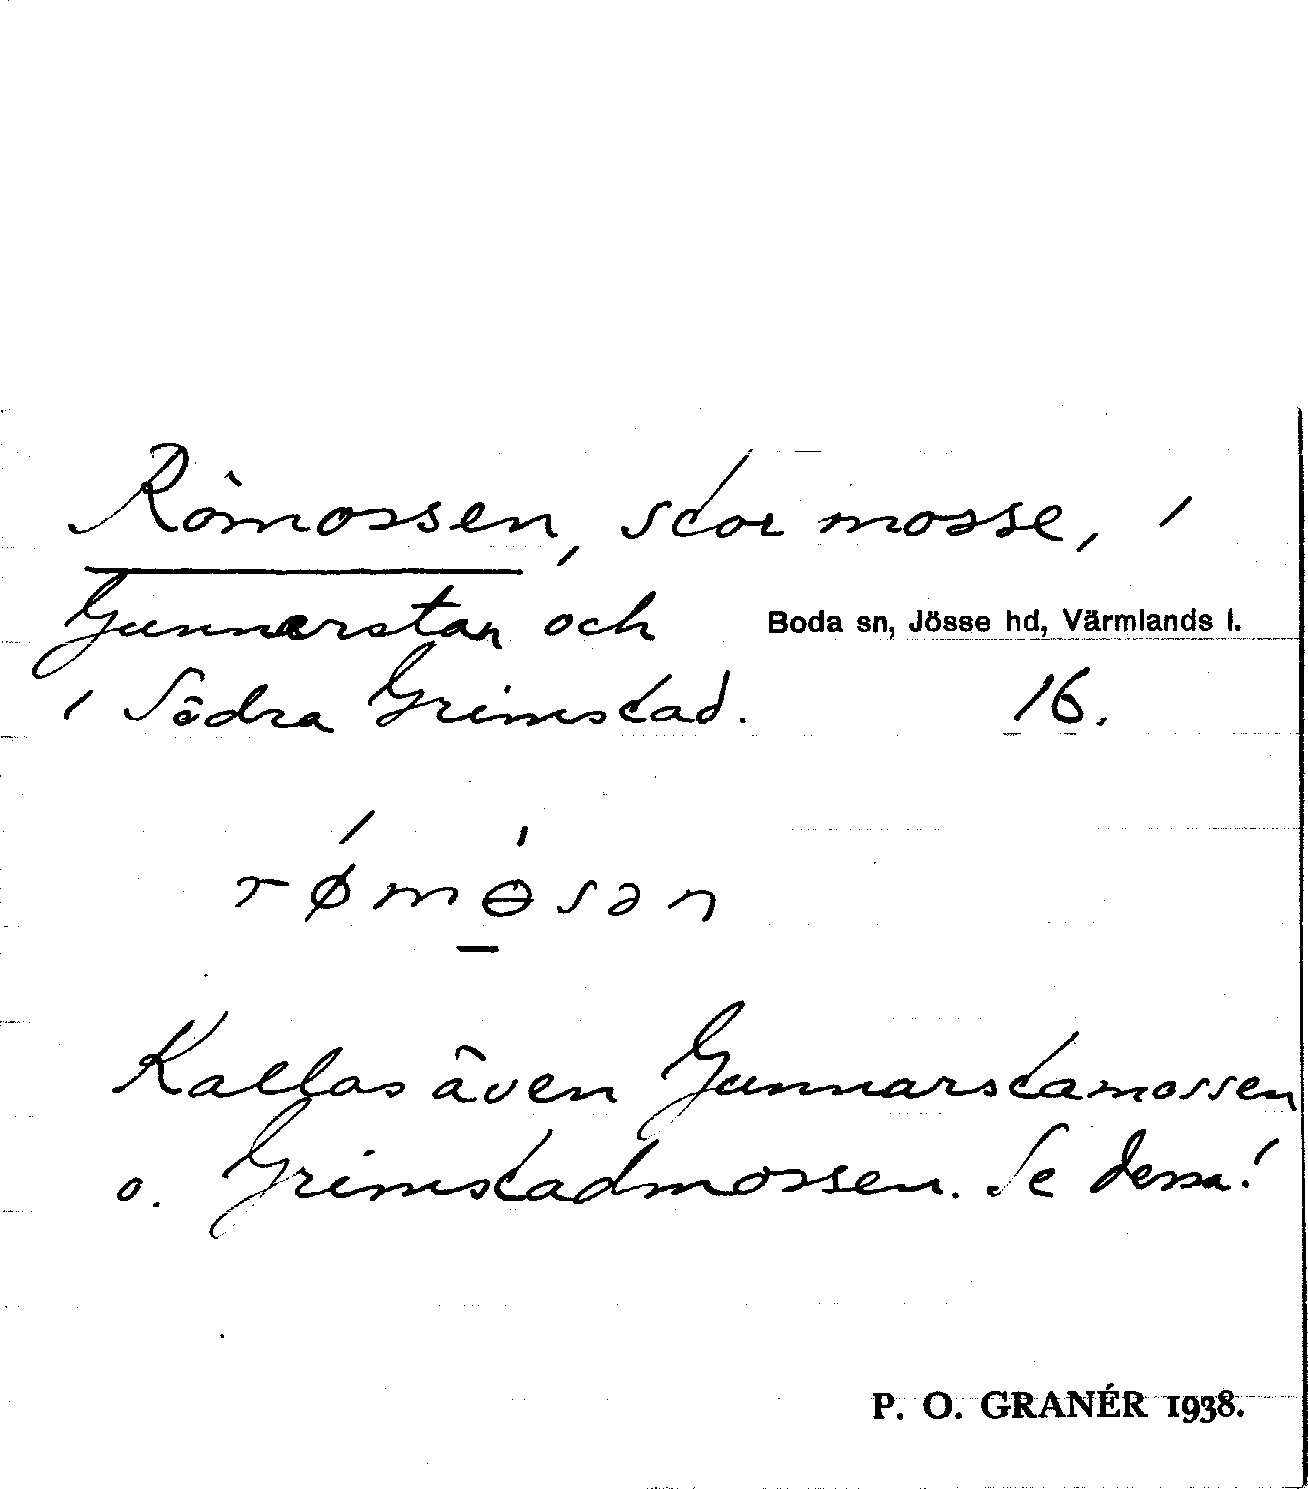 Römossen, stor mosse, i
Gunnerstan och Boda sn, Jösse hd, Värmlands l.
i Södra Grimstad. 16.
rǿmɵ́sən
Kallas även Gunnarstamossen
o. Grimstadmossen. Se dessa!
P. O. GRANÉR 1938.